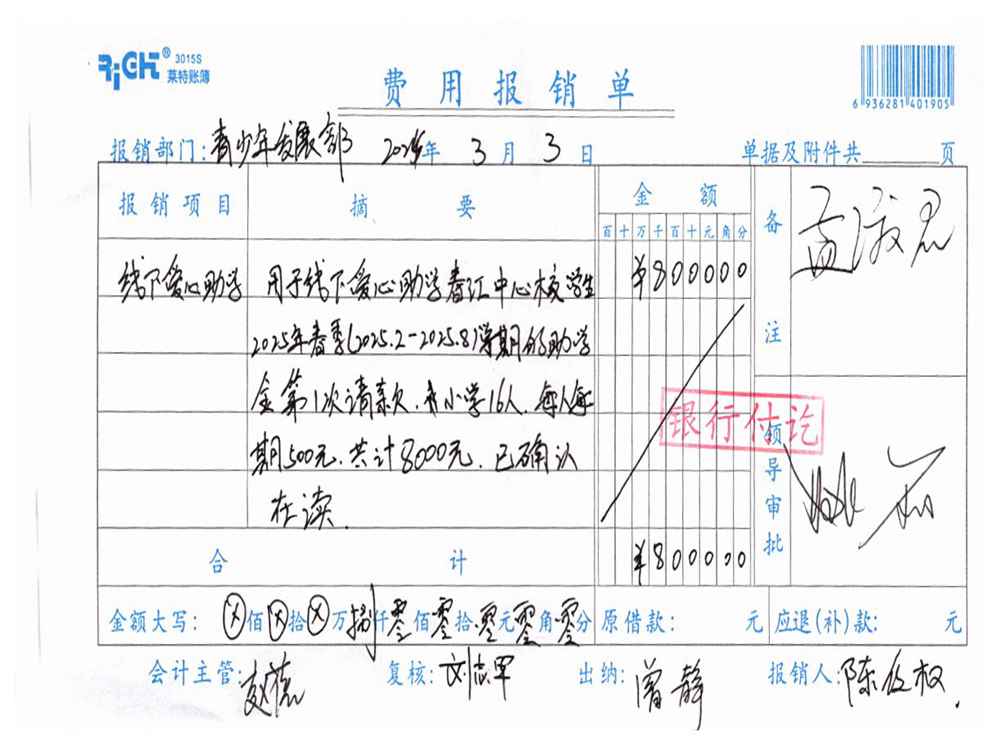 RiGHT® 3015S
莱特账簿
费用报销单
6 936281 401905
报销部门:青少年发展部 2025年 3月 3日 单据及附件共 页
报销项目 摘要 金额 备注
百十万千百十元角分
线下爱心助学 用于线下爱心助学春江中心校学生 ¥800000
2025年春季(2025.2-2025.8)学期的助学
金第1次请款.小学16人.每人每
期500元.共计8000元.已确认
在读.
银行付讫
领导审批
合计 ¥800000
金额大写: ⓧ佰ⓧ拾ⓧ万捌仟零佰零拾零元零角零分 原借款: 元 应退(补)款: 元
会计主管: 复核:刘志军 出纳:曾静 报销人:陈